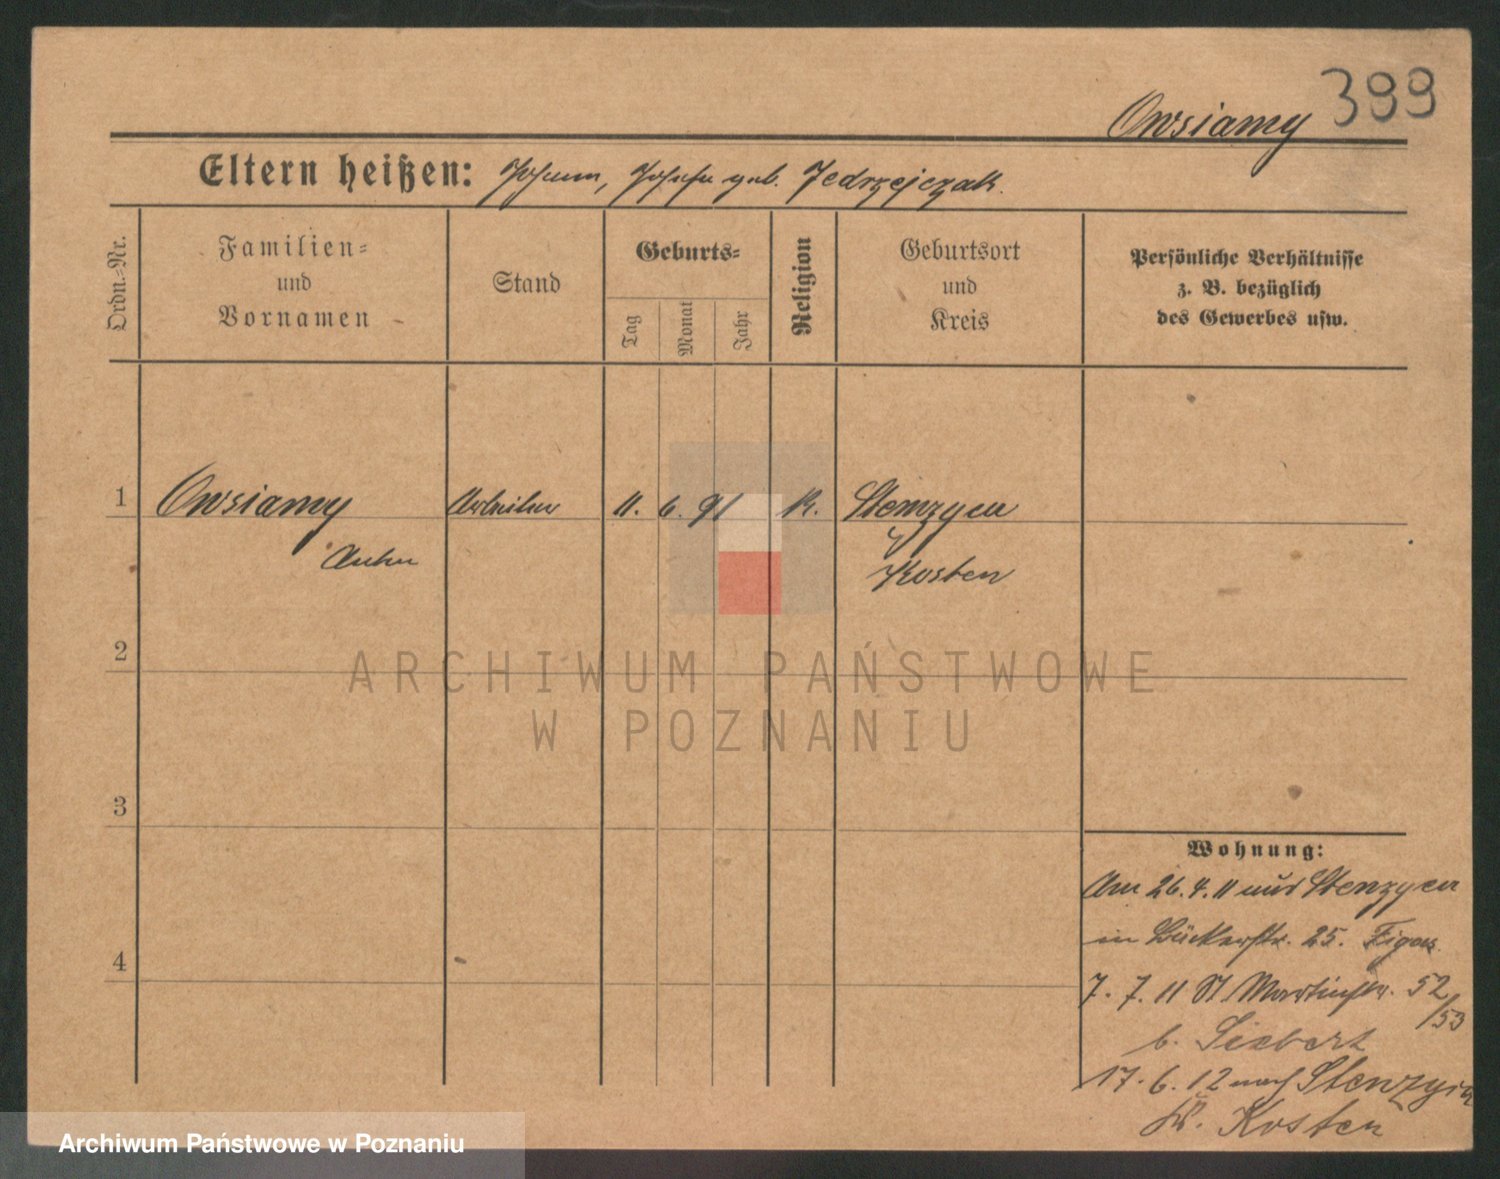 399
Owsiamy
Eltern heißen: Johann, Josefa geb. Jedrzejczak.
Ordn.=Nr.
Familien=
und
Vornamen
Stand
Geburts=
Tag
Monat
Jahr
Religion
Geburtsort
und
Kreis
Persönliche Verhältnisse
z. B. bezüglich
des Gewerbes usw.
1 Owsiamy Arbeiter 11. 6. 91 K.
Kosten
2
ARCHIWUM PAŃSTWOWE
W POZNANIU
3
Wohnung:
Am 26.4.11 aus
in Bäckerstr. 25.
4
7. 7. 11 St Martinstr. 52
/53
b. Siebert
17. 6. 12 nach
Kr. Kosten
Archiwum Państwowe w Poznaniu